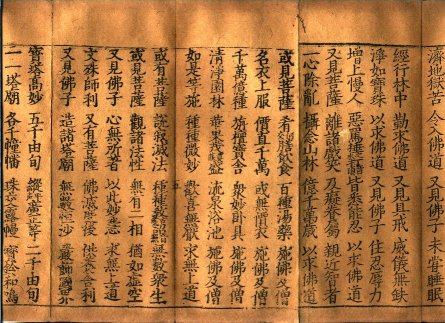 濟地獄苦 令入佛道 又見佛子 未嘗睡眠
經行林中 勤求佛道 又見具戒 威儀無缺
淨如寶珠 以求佛道 又見佛子 住忍辱力
增上慢人 惡罵捶打 皆悉能忍 以求佛道
又見菩薩 離諸戲笑 及癡眷屬 親近智者
一心除亂 攝念山林 億千萬歲 以求佛道
或見菩薩 肴膳飲食 百種湯藥 施佛及僧
名衣上服 價直千萬 或無價衣 施佛及僧
千萬億種 旃檀寶舍 衆妙臥具 施佛及僧
清淨園林 華果茂盛 流泉浴池 施佛及僧
如是等施 種種微妙 歡喜無厭 求無上道
或有菩薩 說寂滅法 種種教詔 無數衆生
或見菩薩 觀諸法性 無有二相 猶如虛空
又見佛子 心無所著 以此妙慧 求無上道
文殊師利 又有菩薩 佛滅度後 供養舍利
又見佛子 造諸塔廟 無數恒沙 嚴飾國界
寶塔高妙 五千由旬 縱廣正等 二千由旬
一一塔廟 各千幢幡 珠交露幔 寶鈴和鳴